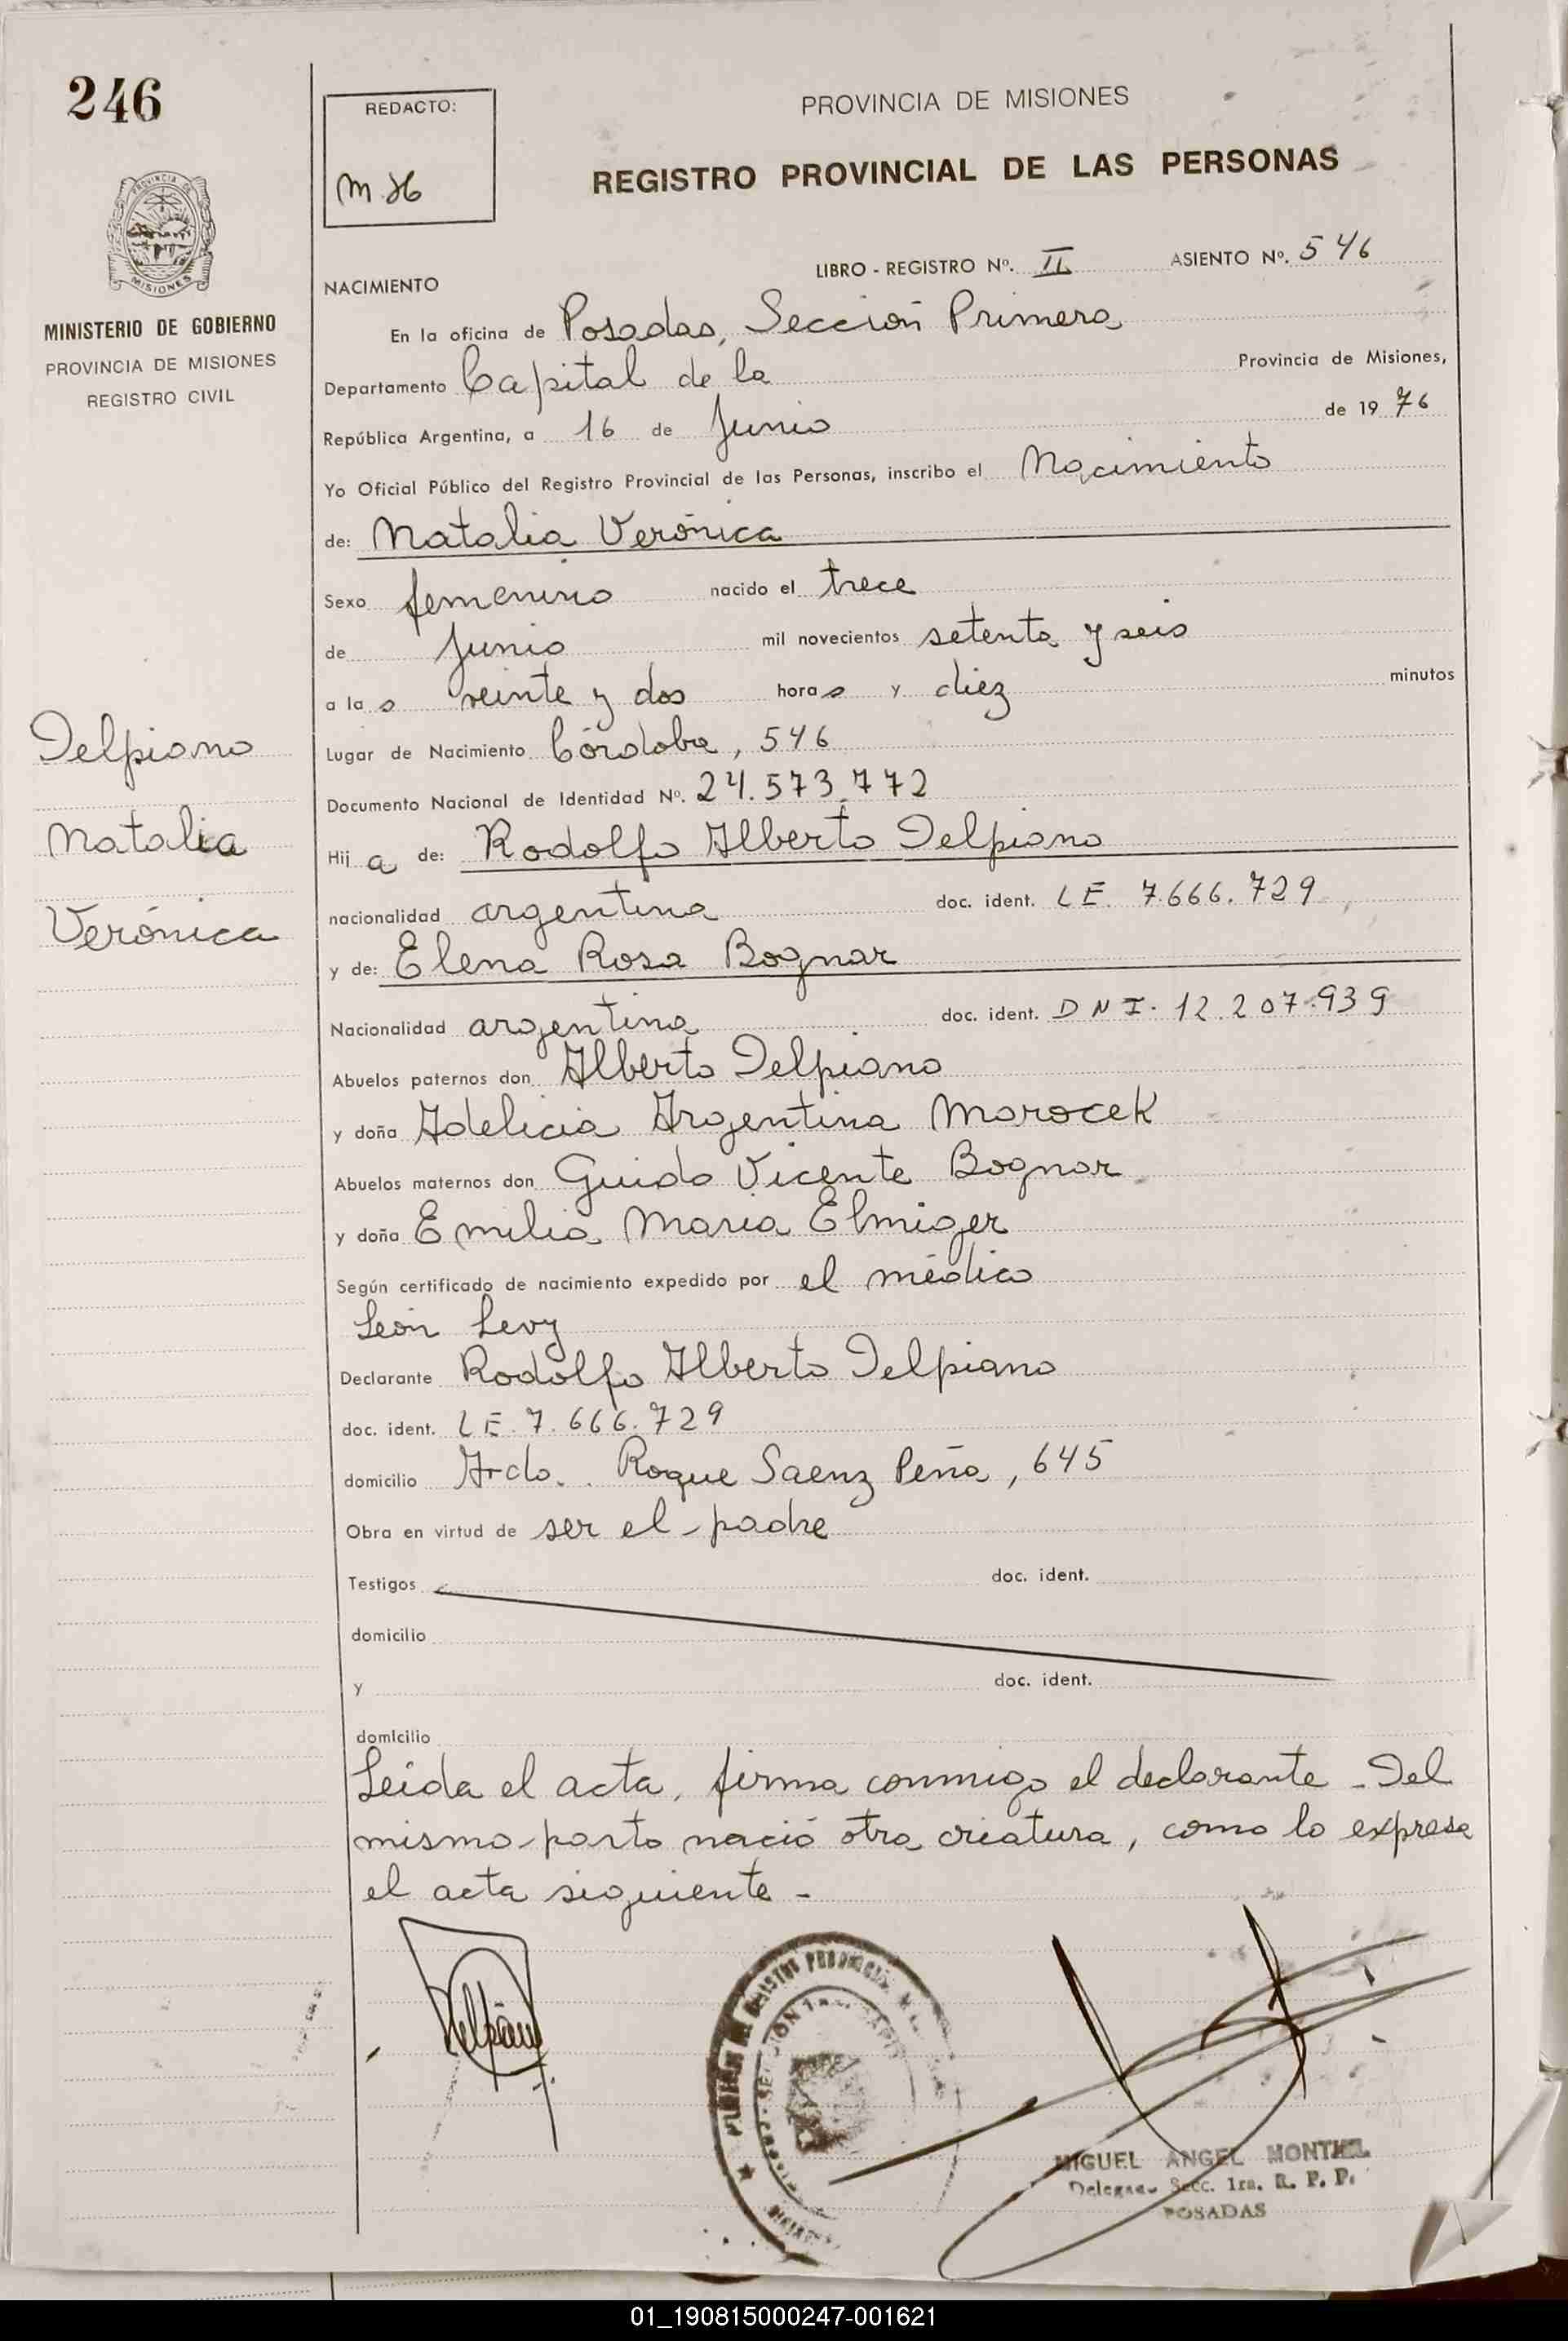 246
REDACTO:
M.H
PROVINCIA DE MISIONES
REGISTRO PROVINCIAL DE LAS PERSONAS
PROVINCIA DE
MISIONES
MINISTERIO DE GOBIERNO
PROVINCIA DE MISIONES
REGISTRO CIVIL
LIBRO - REGISTRO Nº. II ASIENTO Nº. 546
NACIMIENTO
En la oficina de Posadas, Sección Primera
Departamento Capital de la Provincia de Misiones,
República Argentina, a 16 de Junio de 1976
Yo Oficial Público del Registro Provincial de las Personas, inscribo el Nacimiento
de: Natalia Verónica
Sexo femenino nacido el trece
de Junio mil novecientos setenta y seis
a las veinte y dos horas y diez minutos
Lugar de Nacimiento Córdoba, 546
Documento Nacional de Identidad Nº. 24.573.772
Hija de: Rodolfo Alberto Delpiano
nacionalidad argentina doc. ident. LE. 7.666.729
y de: Elena Rosa Bognar
Nacionalidad argentina doc. ident. DNI. 12.207.939
Abuelos paternos don Alberto Delpiano
y doña Adelicia Argentina Marocek
Abuelos maternos don Guido Vicente Bognar
y doña Emilia Maria Elmiger
Según certificado de nacimiento expedido por el médico
León Levy
Declarante Rodolfo Alberto Delpiano
doc. ident. LE. 7.666.729
domicilio Roque Saenz Peña, 645
Obra en virtud de ser el padre
Testigos doc. ident.
domicilio
y doc. ident.
domicilio
Leída el acta, firma conmigo el declarante - Del
mismo parto nació otra criatura, como lo expresa
el acta siguiente -
Delpiano
Natalia
Verónica
MIGUEL ANGEL MONTIEL
Secc. 1ra. R. P. P.
POSADAS
01_190815000247-001621